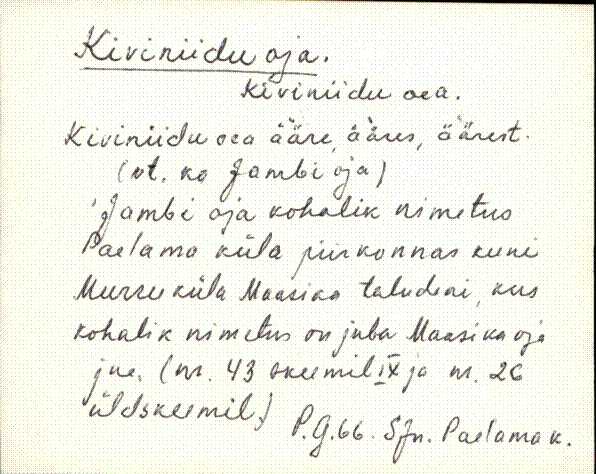 Kiviniidu oja.
Kiviniidu oea.
Kiviniidu oea ääre, ääres, äärest.
(vt. ka Jambi oja)
Jambi oja kohalik nimetus
Paelama küla piirkonnas kuni
Murru küla Maasika taludeni, kus
kohalik nimetus on juba Maasika oja
jne. (nr. 43 skeemil IX ja nr. 26
üldskeemil)
P.G.66. Sjn. Paelama k.